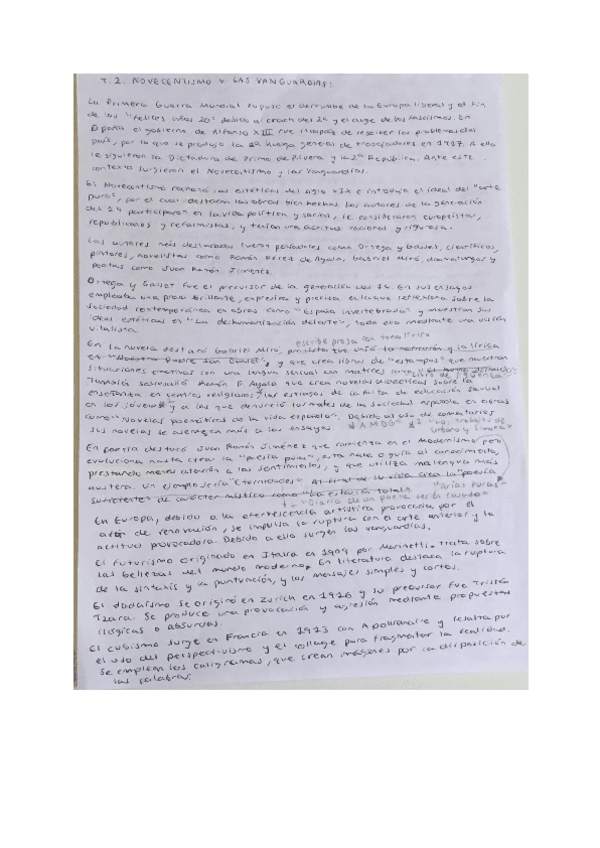 T.2. NOVECENTISMO Y LAS VANGUARDIAS:
La Primera Guerra Mundial supuso el derrumbe de la Europa liberal y el fin
de los "felices años 20" debido al crack del 29 y el auge de los fascismos. En
España el gobierno de Alfonso XIII fue incapaz de resolver los problemas del
país, por lo que se produjo la 1ª huelga general de trabajadores en 1917. A ella
le siguieron la Dictadura de Primo de Rivera y la 2ª República. Ante este
contexto surgieron el Novecentismo y las Vanguardias.
El Novecentismo rechazó las estéticas del siglo XIX e introdujo el ideal del "arte
puro", por el cual destacan las obras bien hechas. Los autores de la generación
del 14 participaron en la vida política y social, se consideraron europeístas,
republicanos y reformistas, y tenían una actitud racional y rigurosa.
Los autores más destacados fueron pensadores como Ortega y Gasset, científicos,
pintores, novelistas como Ramón Pérez de Ayala, Gabriel Miró, dramaturgos y
poetas como Juan Ramón Jiménez.
Ortega y Gasset fue el precursor de la generación del 14. En sus ensayos
empleaba una prosa brillante, expresiva y precisa en la que reflexiona sobre la
sociedad contemporánea en obras como "España invertebrada" y muestran sus
ideas estéticas en "La deshumanización del arte", todo ello mediante una visión
vitalista.
escribe prosa con tono lírico
En la novela destacó Gabriel Miró, prosista que unió la narración y la lírica
en "Nuestro Padre San Daniel", y que crea libros de "estampas" que muestran
situaciones emotivas con una lengua sensual con matices
"Libro de Sigüenza"
También sobresalió Ramón P. Ayala que crea novelas didácticas sobre la
enseñanza en centros religiosos, los estragos de la falta de educación sexual
en los jóvenes y a las que denunció los males de la sociedad española en obras
como "Novelas poemáticas de la vida española". Debido al uso de comentarios
sus novelas se asemejan más a los ensayos.
"Los trabajos de
Urbano y Simona"
En poesía destacó Juan Ramón Jiménez que comienza en el Modernismo pero
evoluciona hasta crear la "poesía pura", esta nace o guía al conocimiento,
prestando menos atención a los sentimientos, y que utiliza una lengua más
austera. Un ejemplo sería "Eternidades". Al final de su vida crea la "poesía
suficiente" de carácter místico como "La estación total".
"Arias tristes"
"Diario de un poeta recién casado"
En Europa, debido a la efervescencia artística provocada por el
afán de renovación, se impulsa la ruptura con el arte anterior y la
actitud provocadora. Debido a ello surgen las vanguardias.
El futurismo originado en Italia en 1909 por Marinetti trata sobre
las bellezas del mundo moderno. En literatura destaca la ruptura
de la sintaxis y la puntuación, y los mensajes simples y cortos.
El dadaísmo se originó en Zurich en 1916 y su precursor fue Tristán
Tzara. Se produce una provocación y agresión mediante propuestas
ilógicas o absurdas.
El cubismo surge en Francia en 1913 con Apollinaire y resalta por
el uso del perspectivismo y el collage para fragmentar la realidad.
Se emplean los caligramas, que crean imágenes por la disposición de
las palabras.